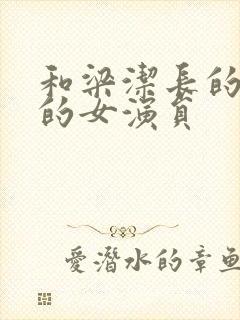 和梁潔長的
的女演員
愛潛水的章魚